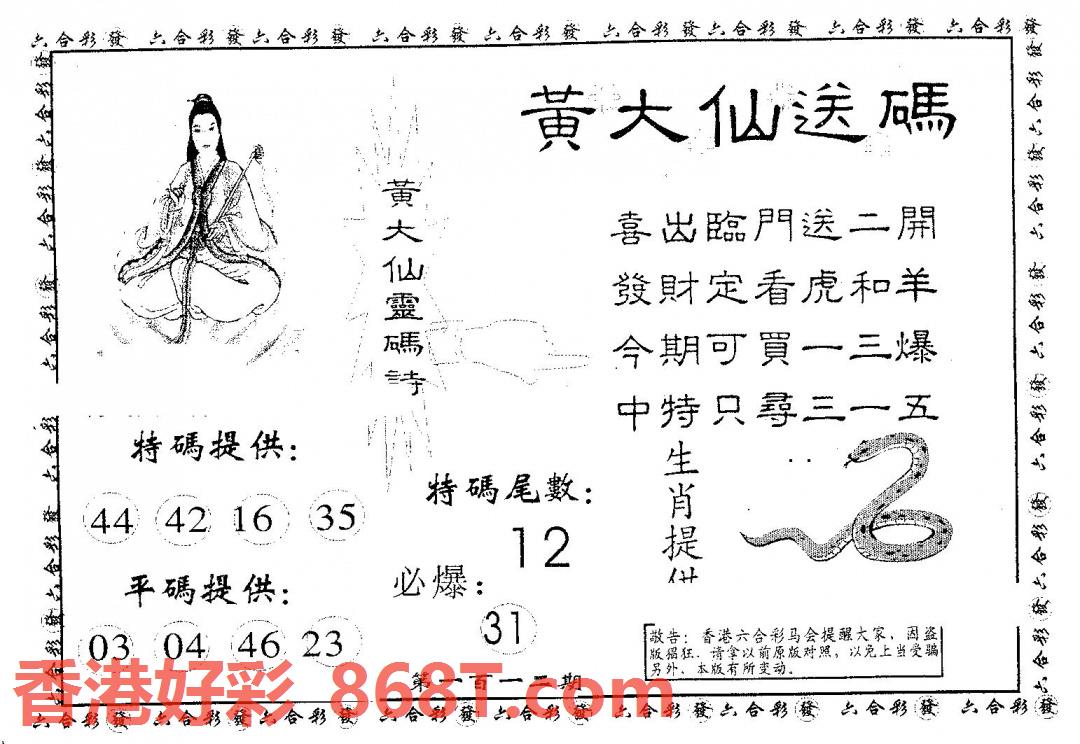 六合彩發 六合彩發六合彩發 六合彩發 六合彩發 六合彩發六合彩發 六合彩發 六合彩發
黃大仙送碼
黃大仙靈碼詩
喜出臨門送二開
發財定看虎和羊
今期可買一三爆
中特只尋三一五
特碼提供：
44 42 16 35
平碼提供：
03 04 46 23
特碼尾數：
12
必爆：
31
生肖提供
敬告：香港六合彩马会提醒大家，因盗
版猖狂，请拿以前原版对照，以免上当受骗
另外，本版有所变动。
第一百一十二期
香港好彩 868T.com
六合彩發 六合彩發 六合彩發 六合彩發 六合彩發 六合彩發六合彩發 六合彩發 六合彩發